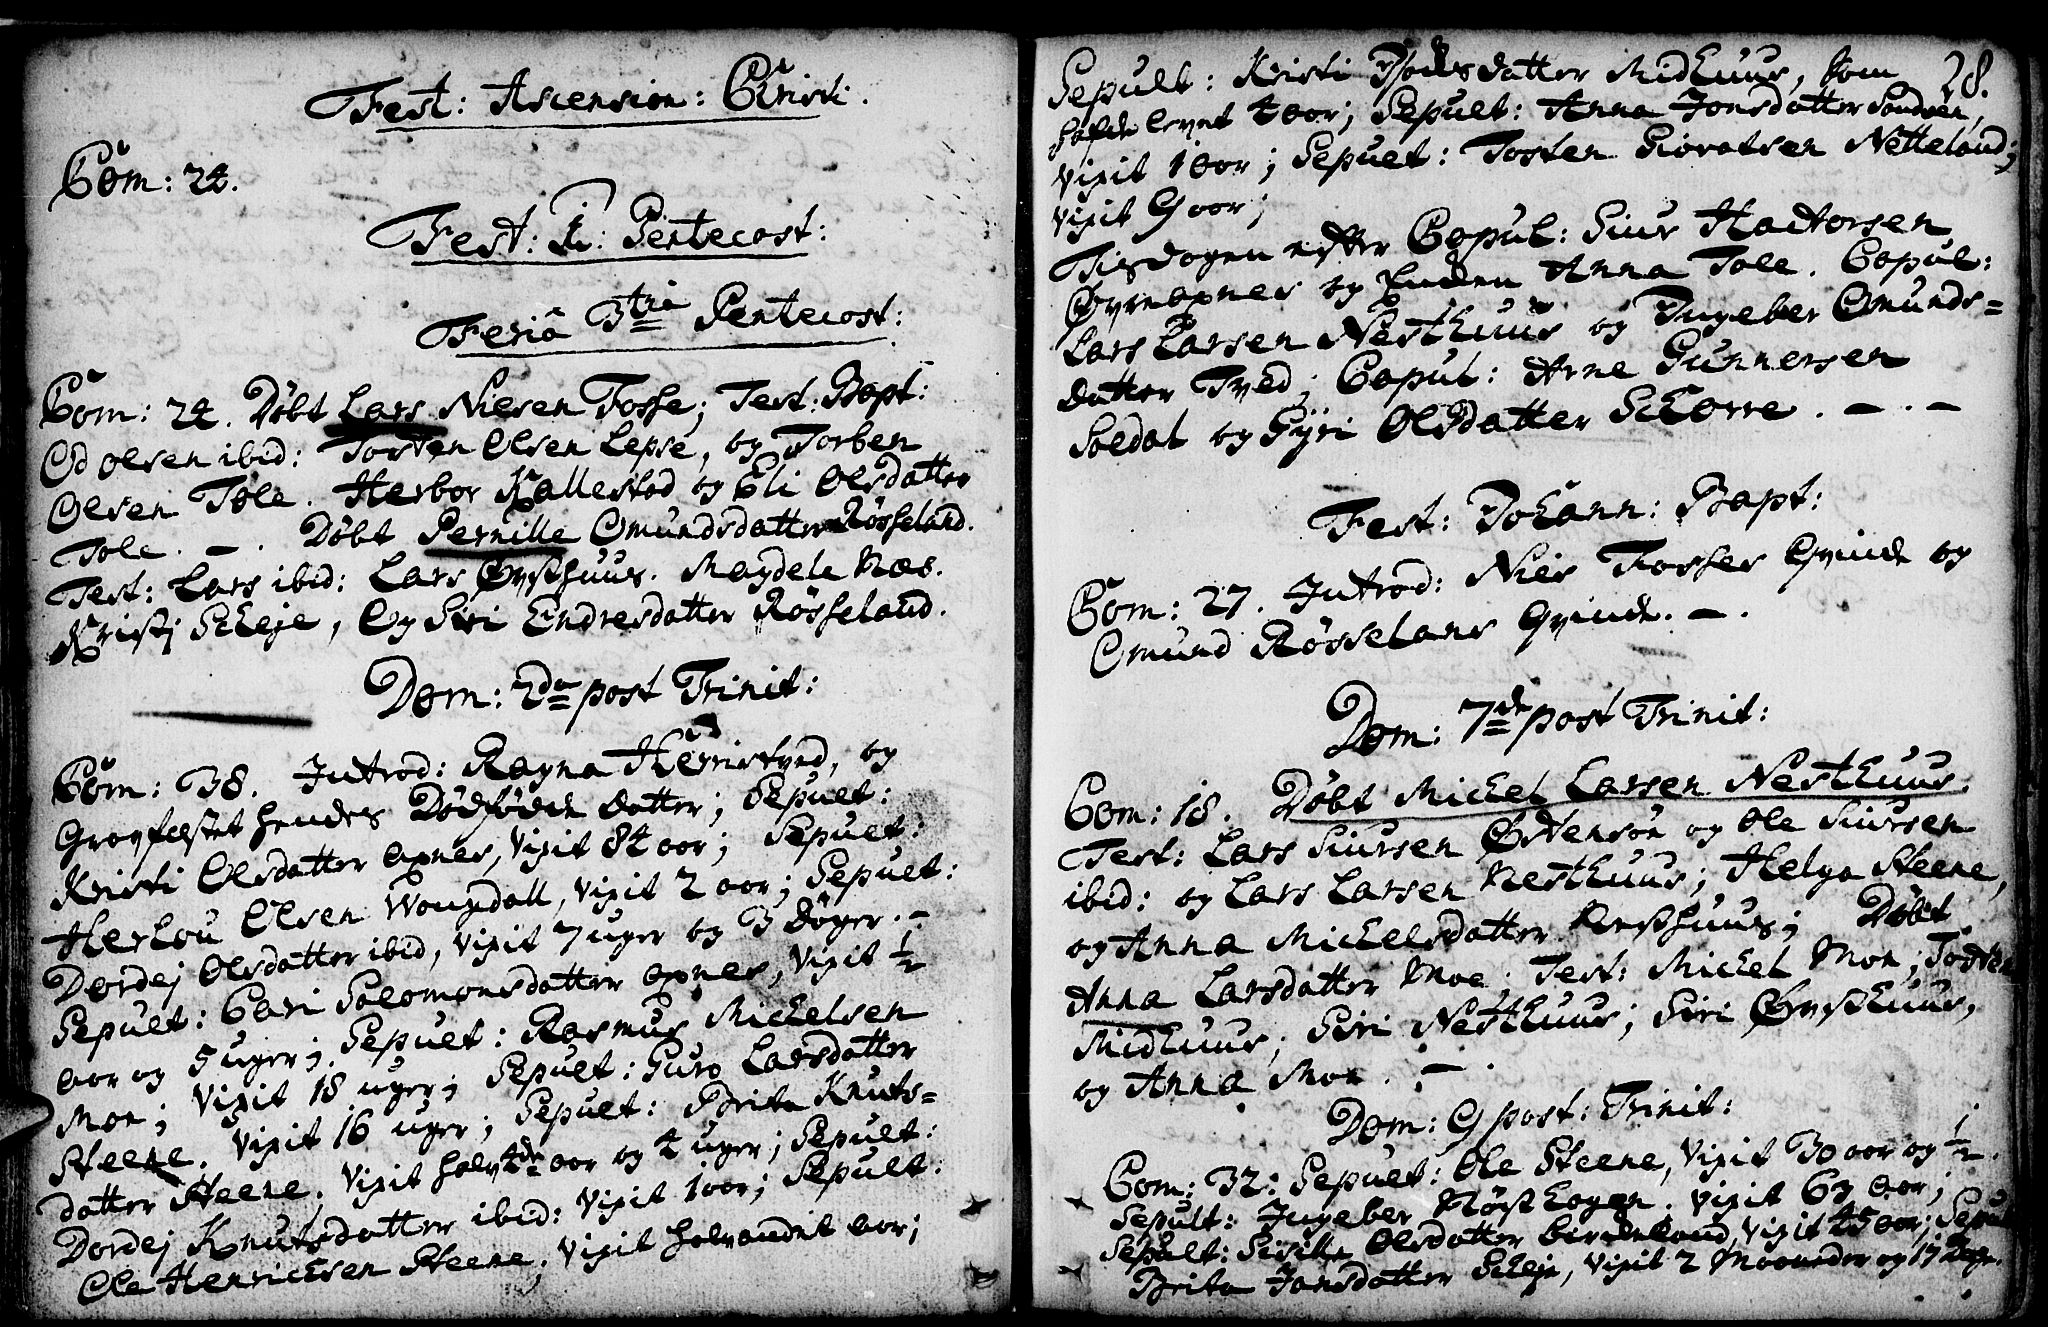 Fest: Ascension: Christi.
Com: 24.
Fest: Pentecost:
Feriâ 3tia Pentecost:
Com: 24. Døbt Lars Nielsen Fosse; Test: Bapt:
Od olsen ibid: Torsten Olsen Lepse, og Torben
Olsen Tole. Herbor Kallestad og Eli Olsdatter
Tole. — . Døbt Pernille Omundsdatter Røsseland.
Test: Lars ibid: Lars Øvsthuus. Magdele Næs.
Kristj Scheje, Og Siri Endresdatter Røsseland.
Dom: 2da post Trinit:
Com: 38. Introd: Ragna, og
Gravfæstet hendes Dødfødde datter; Sepult:
Kristi Olsdatter Axnes, vixit 84 aar; Sepult:
Herlou Olsen Wangdall, vixit 2 aar; Sepult:
Dordej Olsdatter ibid, vixit 7 uger og 3 døger. —
Sepult: Cari Salomonsdatter Axnes, vixit ½
aar og 5 uger; Sepult: Rasmus Michelsen
Moe; vixit 18 uger; Sepult: Guro Larsdatter
Steene. vixit 16 uger; Sepult: Brita Knuts-
datter Steene, vixit halv 4de aar og 4 uger; Sepult:
Dordej Knutsdatter ibid: vixit 1 aar; Sepult:
Ole Henrichsen Steene, vixit halvandet aar;
28.
Sepult: Kristi datter Midhuus, som
hafde levet 4 aar; Sepult: Anna Jonsdatter Sandven,
vixit 1 aar; Sepult: Tosten Netteland;
vixit 9 aar;
Tisdagen efter Copul: Siur Hactorsen
Øvreaxnes og Enken Anna Tole. Copul:
Lars Larsen Nesthuus og Ingeber Omunds-
datter Tved; Copul: Arne Gunnersen
Soldat og Gyri Olsdatter Schorre. — . —
Fest: Johann: Bapt:
Com: 27. Introd: Niels Fosses Qvinde og
Omund Røsselans Qvinde. — .
Dom: 7de post Trinit:
Com: 18. Døbt Michel Larsen Nesthuus.
Test: Lars Siursen Østensøn og Ole Siursen
ibid: og Lars Larsen Nesthuus; Helga Steene,
og Anna Michelsdatter Nesthuus; Døbt
Anna Larsdatter Moe; Test: Michel Moe; Tosten
Midhuus; Siri Nesthuus; Siri Øvsthuus,
og Anna Moe. —
Dom: 9 post: Trinit:
Com: 32: Sepult: Ole Steene, vixit 30 aar og ½.
Sepult: Ingeber. vixit 69 aar;
Sepult: Sisille Olsdatter Birkeland, vixit 45 aar; Sepult
Brita Jansdatter Scheje, vixit 2 Maaneder og 17 Dage.